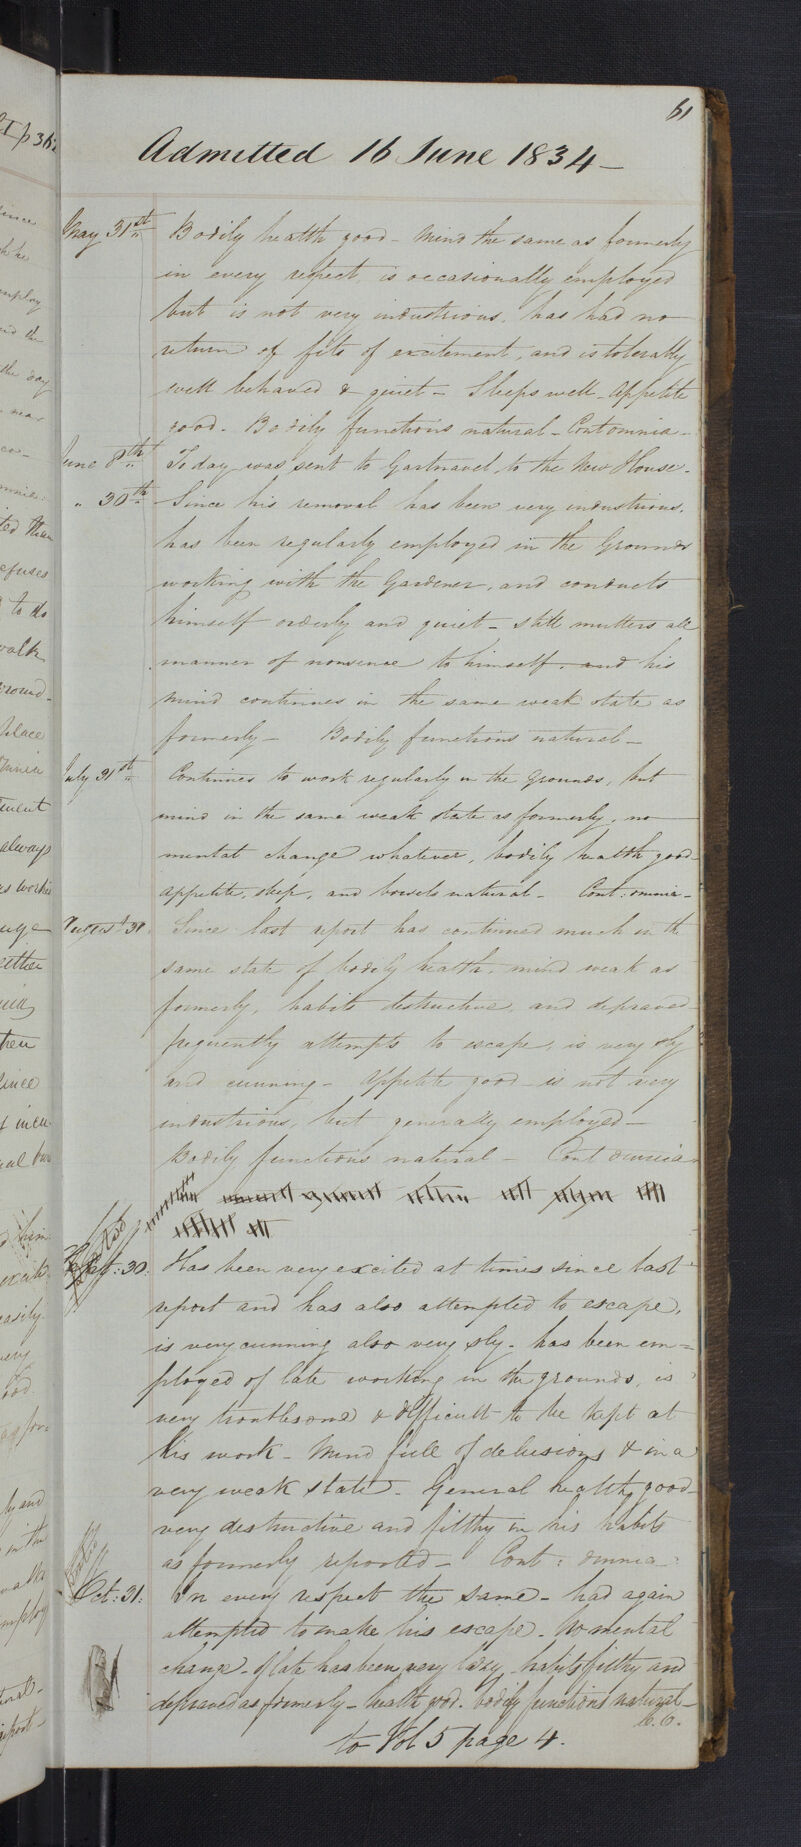 61
Admitted 16 June 1834
May 31st Bodily health good - Mind the same as formerly
in every respect, is occasionally employed
but is not very industrious, has had no
return of fits of excitement, and is tolerably
well behaved & quiet - Sleeps well - Appetite
good - Bodily functions natural - Cont omnia -
June 8th Today was sent to Gartnavel, to the New House -
" 30th Since his removal has been very industrious,
has been regularly employed in the Grounds
working with the Gardener, and conducts
himself orderly and quiet - still mutters all
manner of nonsense to himself, and his
mind continues in the same weak state as
formerly - Bodily functions natural -
July 31st Continues to work regularly in the Grounds, but
mind in the same weak state as formerly, no
mental change whatever, bodily health good -
appetite, sleep, and bowels natural - Cont: omnia -
August 31 Since last report has continued much in the
same state of bodily health, mind weak as
formerly, habits destructive, and depraved -
frequently attempts to escape, is very sly
and cunning - Appetite good - is not very
industrious, but generally employed -
Bodily functions natural - Cont omnia
Sept: 30: Has been very excited at times since last
report and has also attempted to escape,
is very cunning also very sly - has been em=
ployed of late working in the grounds, is
very troublesome & difficult to be kept at
his work - Mind full of delusions & in a
very weak state - General health good -
very destructive and filthy in his habits
as formerly reported - Cont: omnia -
Oct: 31: In every respect the same - had again
attempted to make his escape - No mental
change - Of late has been very lazy, habits filthy and
depraved as formerly - health good. bodily functions natural -
C.O.
to Vol 5 page 4.